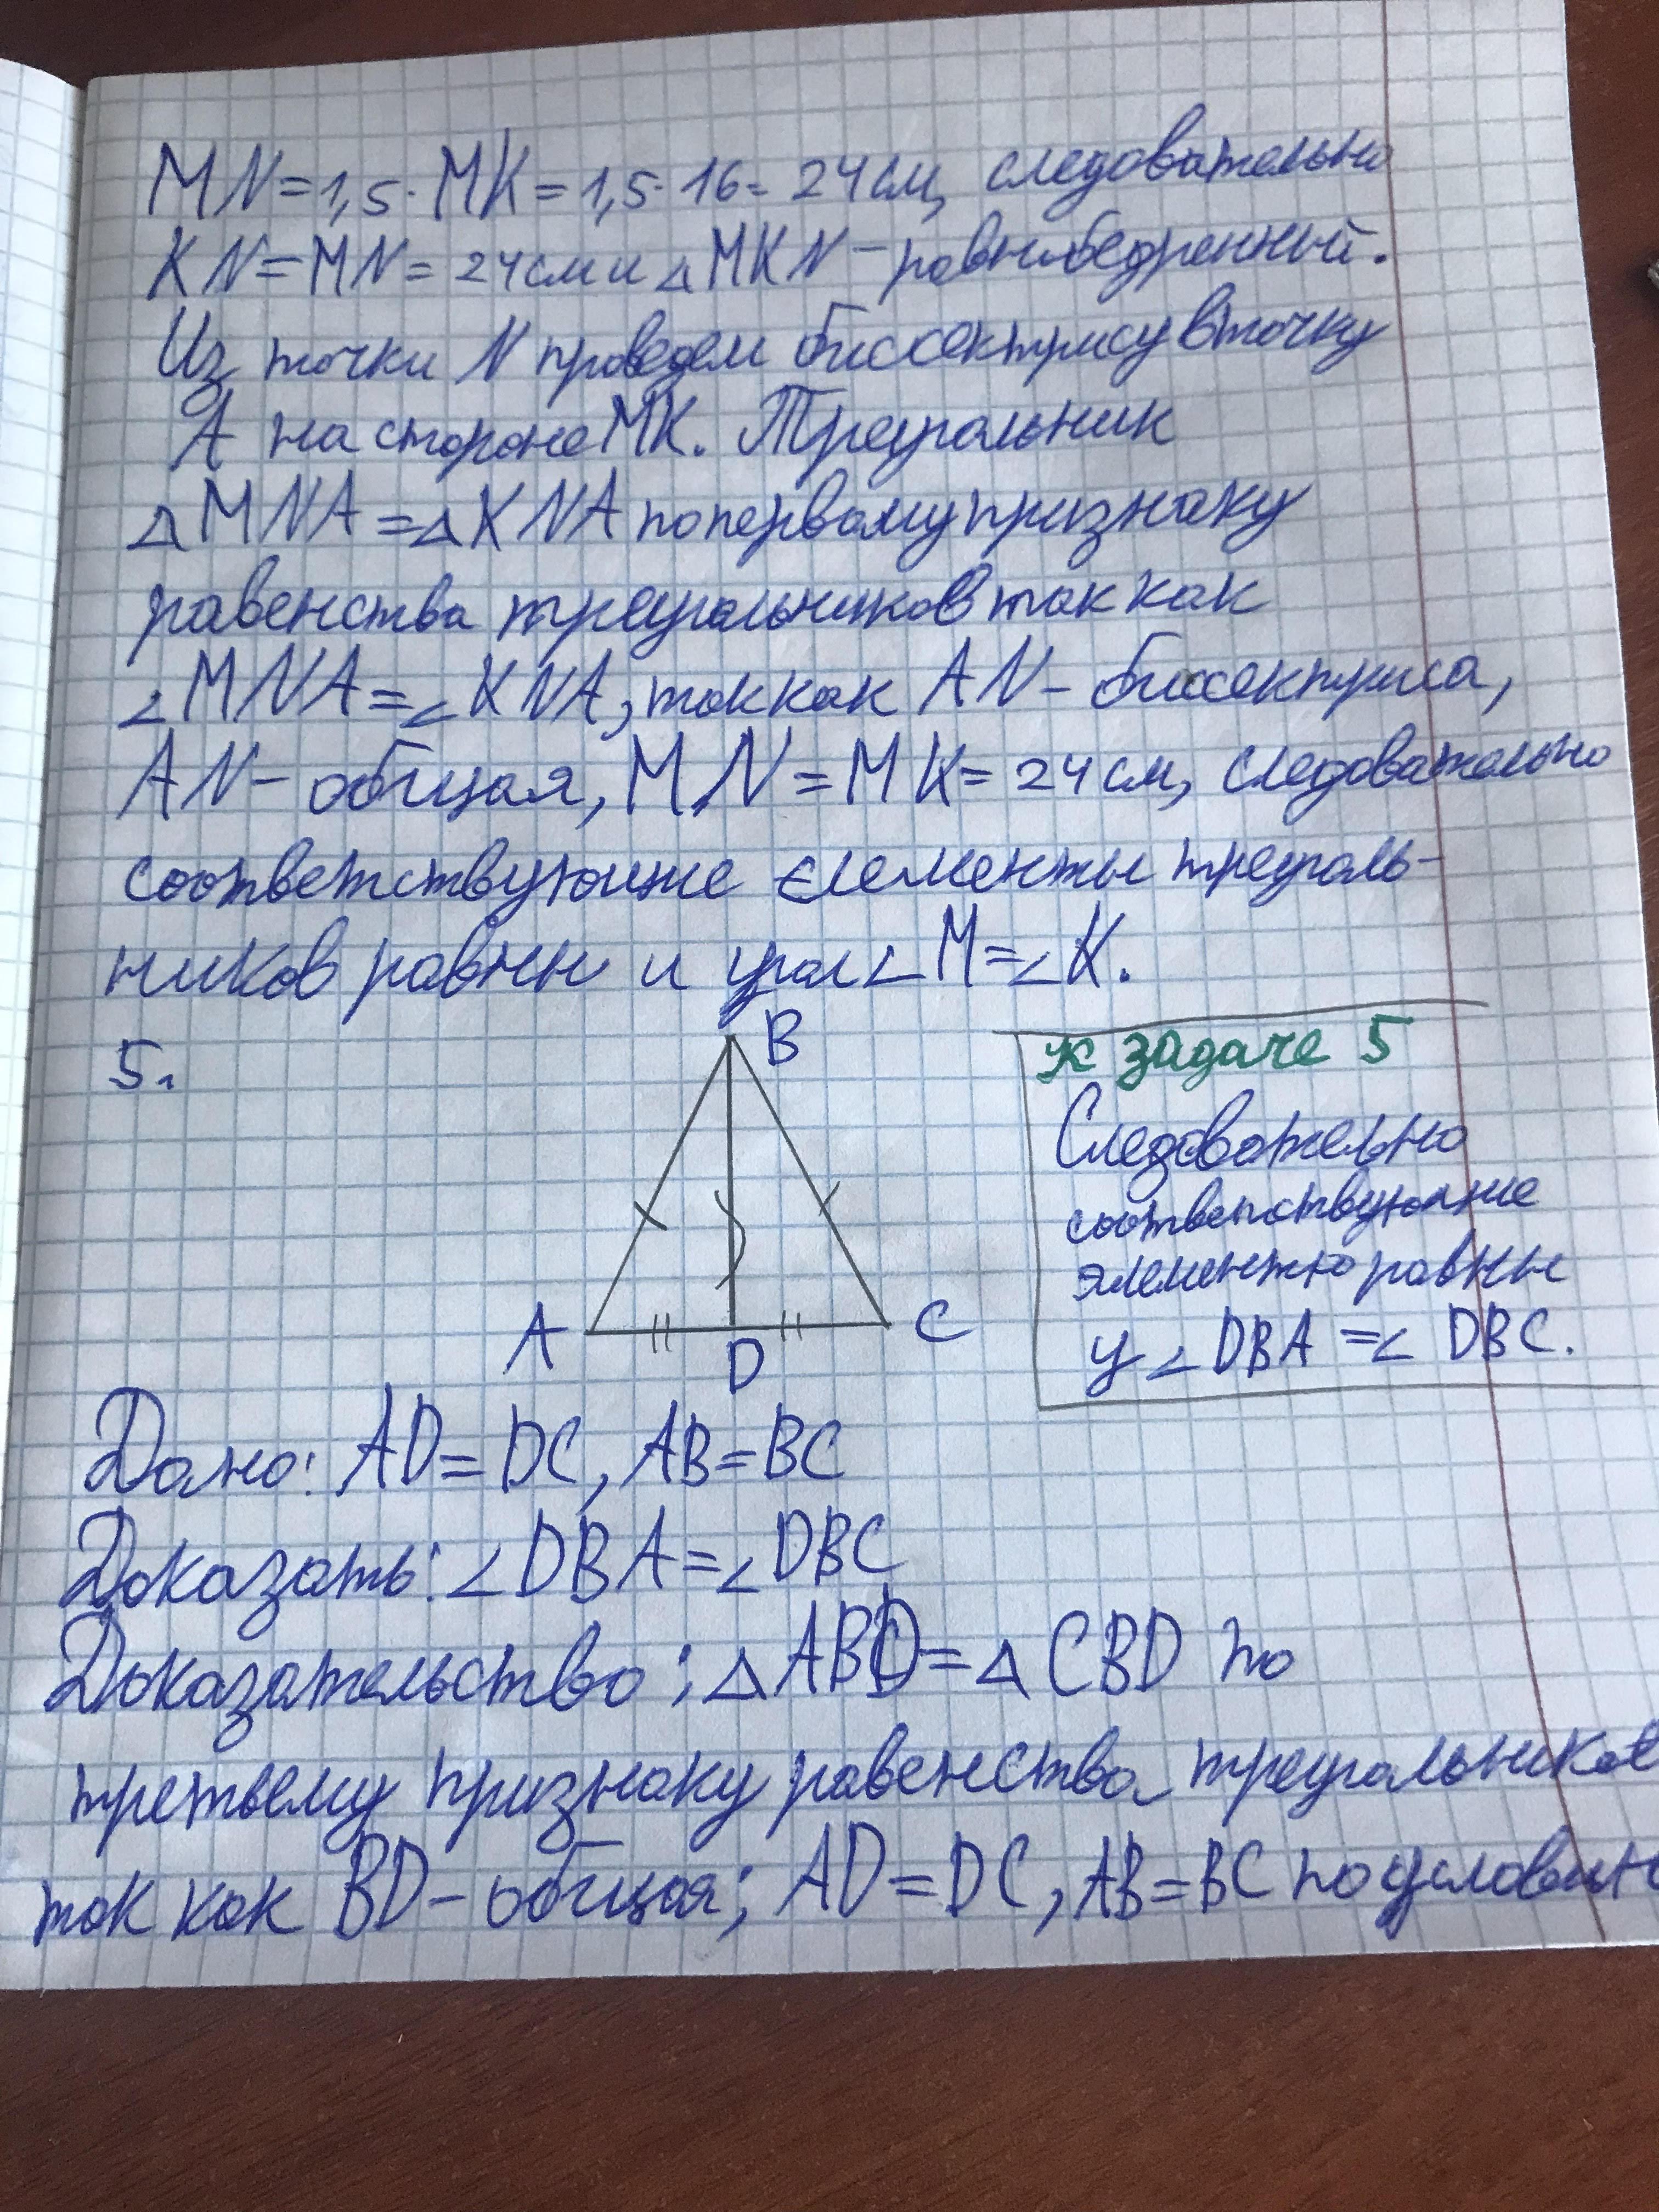 MN=1,5·MK=1,5·16=24см, следовательно
KN=MN=24см и △MKN-равнобедренный.
Из точки N проведем биссектрису в точку
А на стороне МК. Треугольник
△MNA=△KNA по первому признаку
равенства треугольников так как
∠MNA=∠KNA, так как AN-биссектриса,
AN-общая, MN=MK=24см, следовательно
соответствующие елементы треуголь-
ников равны и угол ∠M=∠K.
5.
B
A
D
C
к задаче 5
Следовательно
соответствующие
элементы равны
у ∠DBA=∠DBC.
Дано: AD=DC, AB=BC
Доказать: ∠DBA=∠DBC
Доказательство: △ABD=△CBD по
третьему признаку равенства треугольников
так как BD-общая; AD=DC, AB=BC по условию